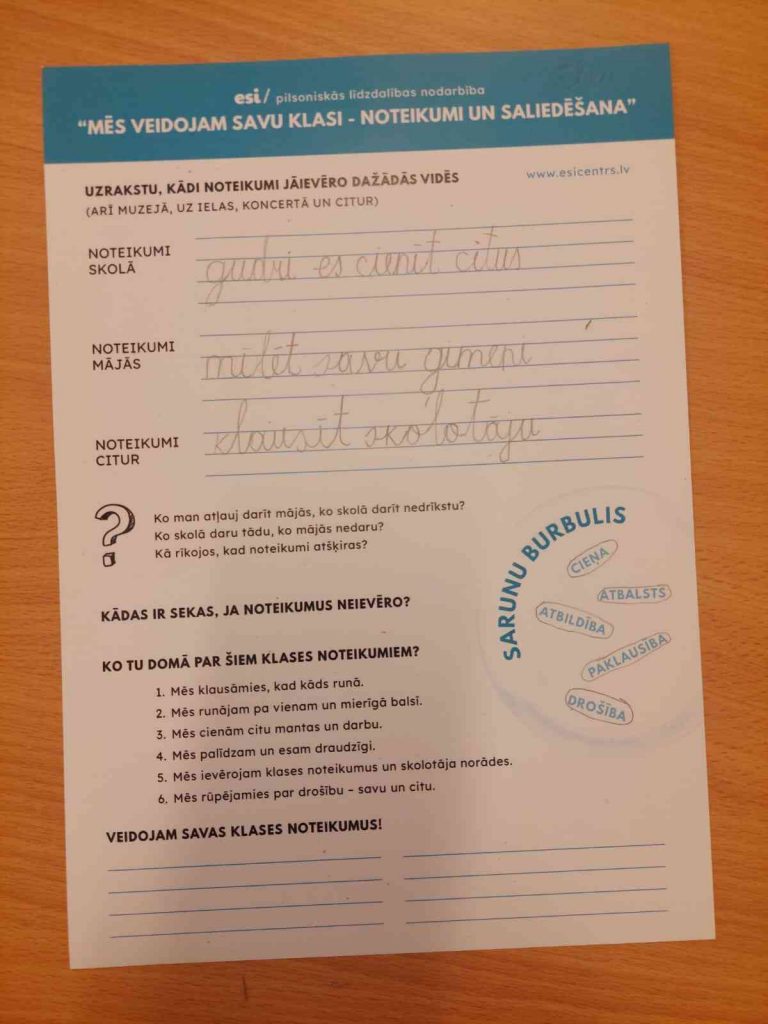 esi/ pilsoniskās līdzdalības nodarbība
“MĒS VEIDOJAM SAVU KLASI - NOTEIKUMI UN SALIEDĒŠANA”
UZRAKSTU, KĀDI NOTEIKUMI JĀIEVĒRO DAŽĀDĀS VIDĒS
www.esicentrs.lv
(ARĪ MUZEJĀ, UZ IELAS, KONCERTĀ UN CITUR)
NOTEIKUMI
SKOLĀ
gudri es cienīt citus
NOTEIKUMI
MĀJĀS
mīlēt savu ģimeņi
NOTEIKUMI
CITUR
klausīt skolotāju
?
Ko man atļauj darīt mājās, ko skolā darīt nedrīkstu?
Ko skolā daru tādu, ko mājās nedaru?
Kā rīkojos, kad noteikumi atšķiras?
SARUNU BURBULIS
CIEŅA
ATBALSTS
ATBILDĪBA
PAKLAUSĪBA
DROŠĪBA
KĀDAS IR SEKAS, JA NOTEIKUMUS NEIEVĒRO?
KO TU DOMĀ PAR ŠIEM KLASES NOTEIKUMIEM?
1. Mēs klausāmies, kad kāds runā.
2. Mēs runājam pa vienam un mierīgā balsī.
3. Mēs cienām citu mantas un darbu.
4. Mēs palīdzam un esam draudzīgi.
5. Mēs ievērojam klases noteikumus un skolotāja norādes.
6. Mēs rūpējamies par drošību – savu un citu.
VEIDOJAM SAVAS KLASES NOTEIKUMUS!